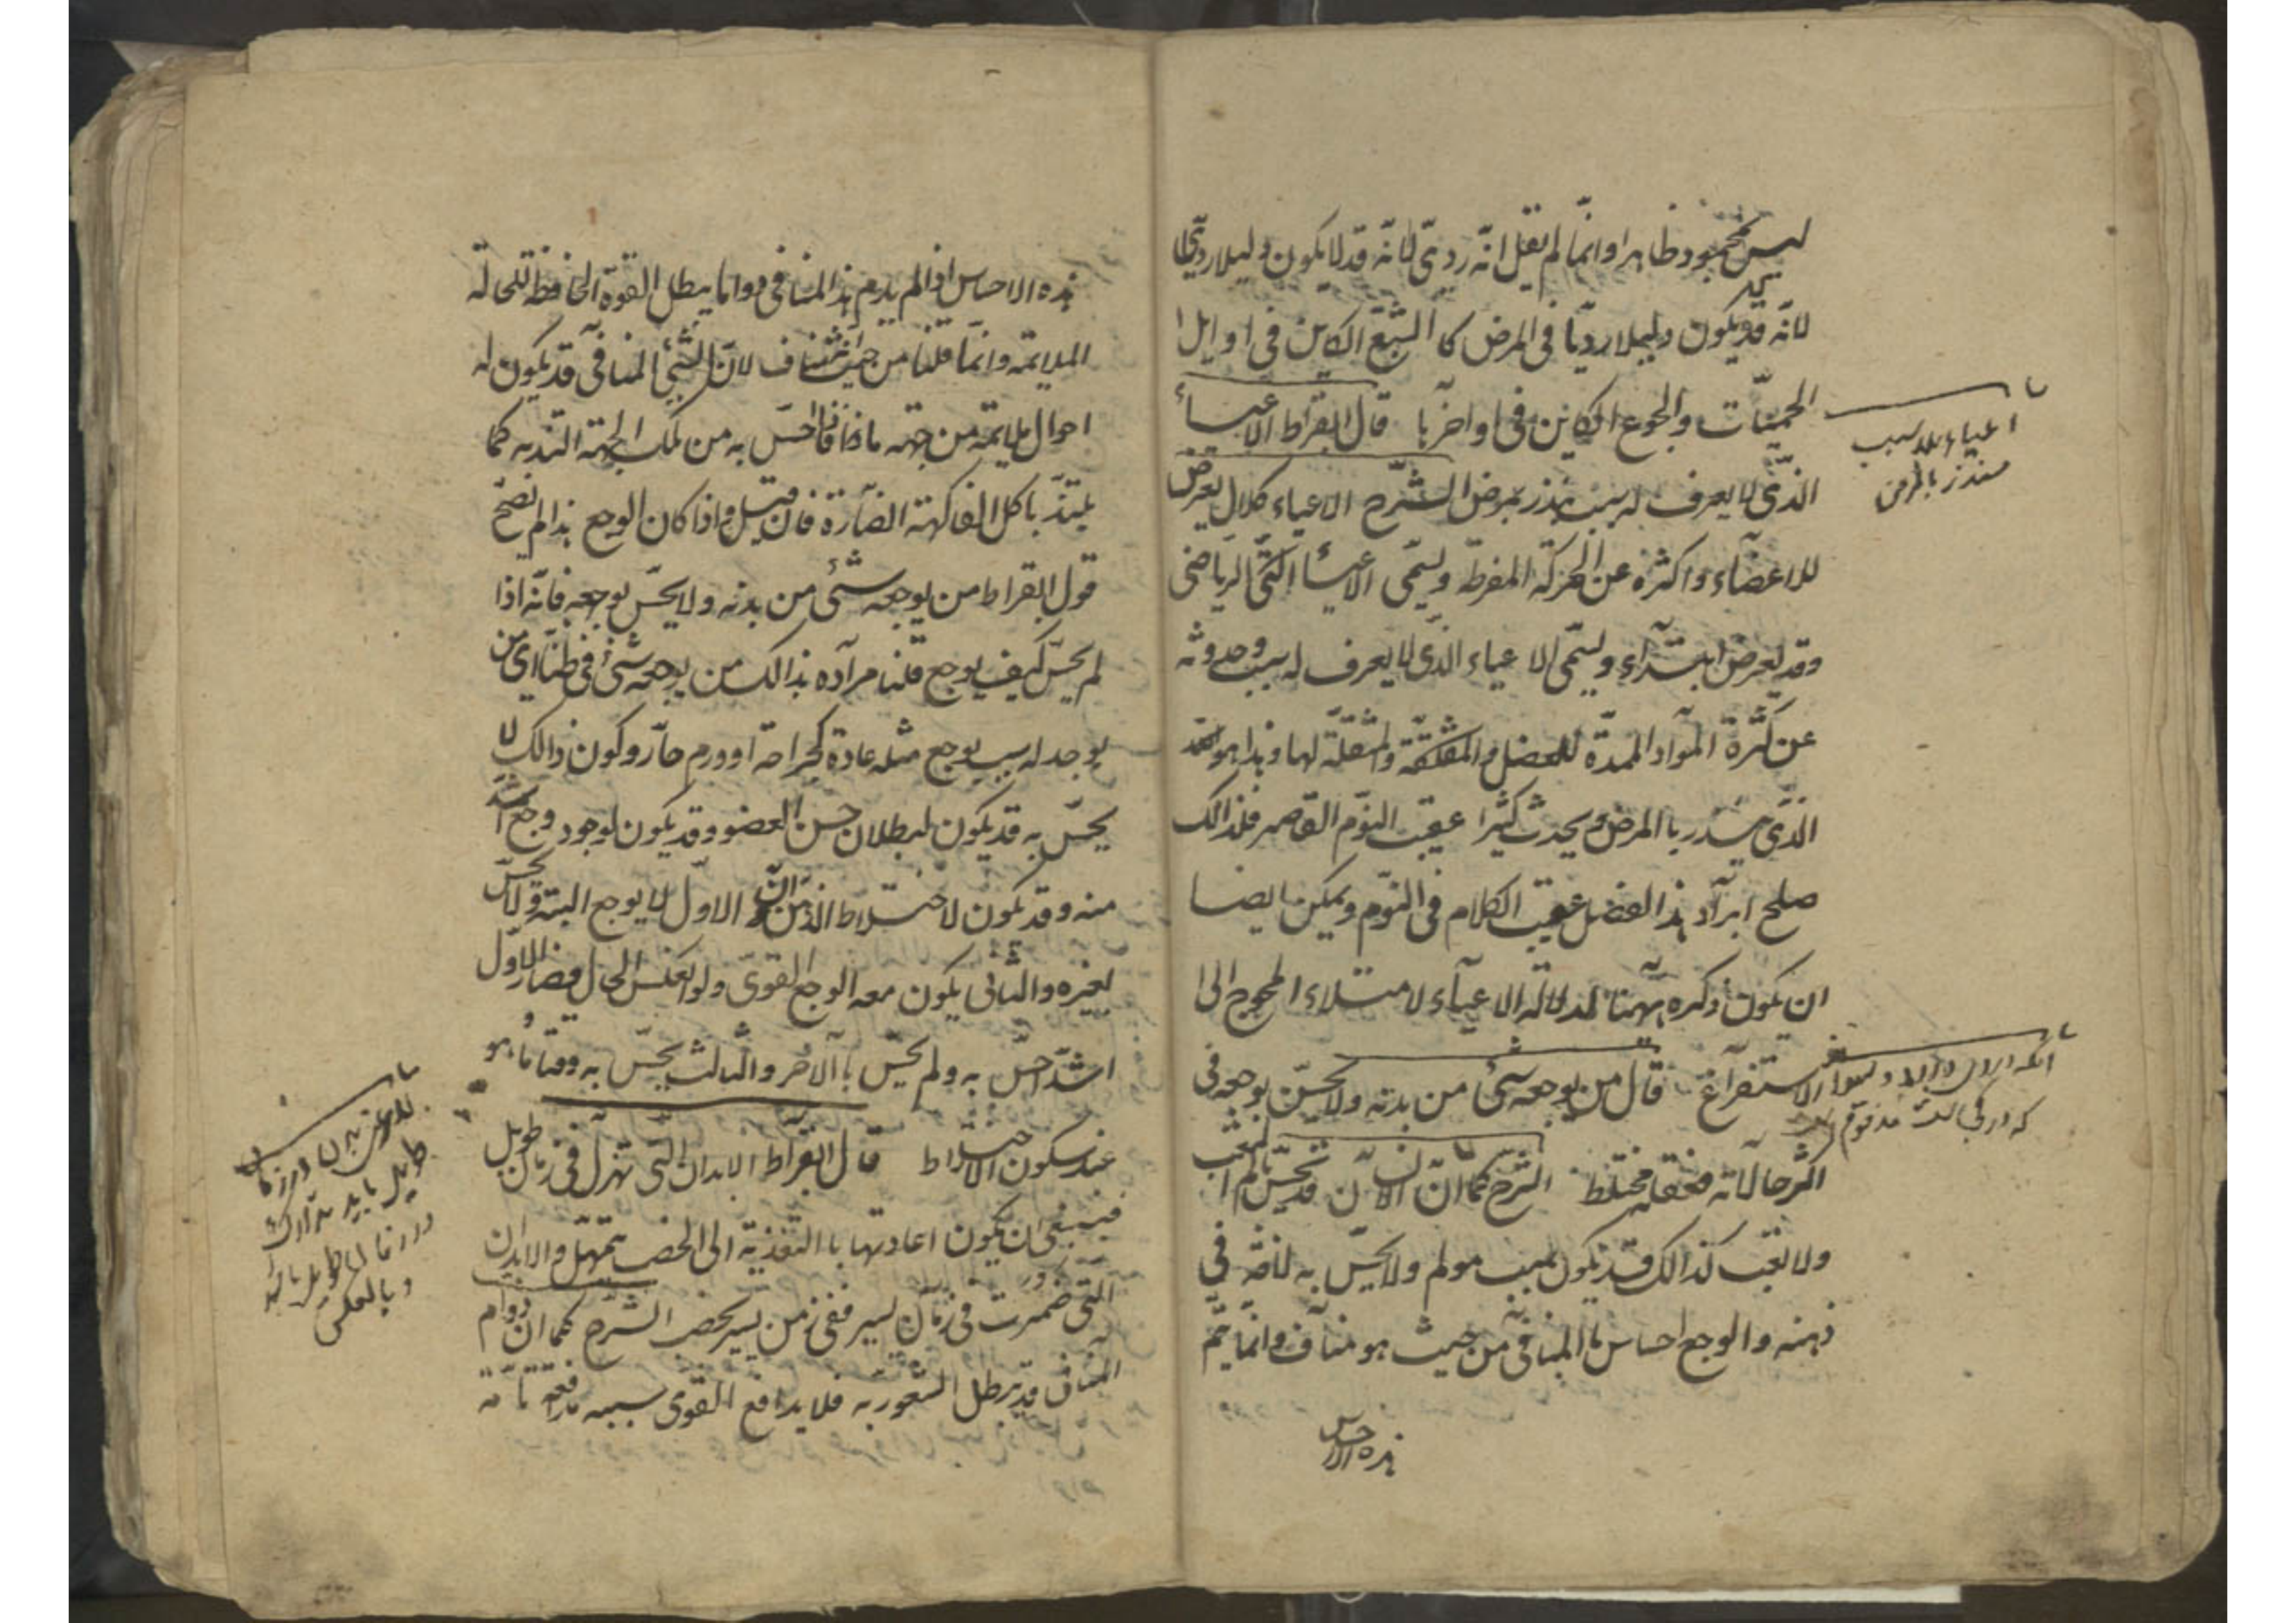 ليس بمحمود ظاهرا وانّما لم يقل انّه ردىّ لانّه قد لا يكون دليلا رديّا
لانّه قد يكون دليلا رديّا فى المرض كا الشبع الكاين فى اوايل
الحميّات والجوع الكاين فى اواخرها قال ابقراط الاعياء
الذّى لا يعرف له سبب ينذر بمرض الشرح الاعياء كلال يعرض
للاعضآء واكثره عن الحركة المفرطة ويسمّى الاعياء الرياضى
وقد يعرض ابتدآء ويسمّى الاعياء الذّى لا يعرف له سبب وحدوثه
عن كثرة الموآد الممدّة للعضل والمثقلة لها وهذا هو
الذّى ينذر بالمرض ويحدث كثيرا عقيب النّوم القاصر فلذالك
صلح ايرآد هذا الفصل عقيب الكلام فى النّوم ويمكن ايضا
ان يكون ذكره ههنا لدلالة الاعيآء لامتلاء المحوج الى
الاستفرآغ قال من يوجعه شئ من بدنه ولا يحسّ بوجعه فى
اكثر حالاته فعقله مختلط الشرح كما انّ الانسآن قد يحسّ بالم
ولا تعب كذالك قد يكون سبب مولم ولا يحسّ به لافة فى
ذهنه والوجع احساس بالمنافى من حيث هو منآف وانّما يتمّ
هذه الاحساس
اعياء بلا سبب
منذر بالمرض
هذه الاحساس اذا لم يدم هذا المنافى دواما يبطل القوة الحافظة للحالة
الملايمة وانّما قلنا من حيث مناف لانّ الشّئ المنافى قد يكون له
احوال ملايمة من جهة ما فاذا احسّ به من تلك الجهة التذ به كما
يلتذّ باكل الفاكهة الضآرة فان قيل واذا كان الوجع هذا لم يصحّ
قول ابقراط من يوجعه شئ من بدنه ولا يحسّ بوجعه فانّه اذا
لم يحسّ كيف يوجع قلنا مرآده بذالك من يوجعه شئ فى ظنّنا اى من
يوجد له سبب يوجع مثله عادة كجراحة او ورم حآر وكون ذالك لا
يحسّ به قد يكون لبطلان حسّ العضو وقد يكون لوجود وجع اشدّ
منه وقد يكون لاختلاط الذهن الاوّل لا يوجع البتة ولا يحسّ
لغيره والثانى يكون معه الوجع القوىّ ولو انعكس الحال فصار الاوّل
اشدّ احسّ به ولم يحسّ بالآخر والثالث يحسّ به وقتا ما وهو
عند سكون الاختلاط قال ابقرآط الابدان التّى تهزل فى زمان طويل
فينبغى ان يكون اعادتها باالتغذية الى الخصب بتمهّل والابدان
التّى ضمرت فى زمآن يسير ففى زمن يسير يخصب الشرح كما ان دوام
المنافى قد يبطل الشعور به فلا يدافع القوى سببه مدافعة تامّة
طويل بايد
وبالعكس